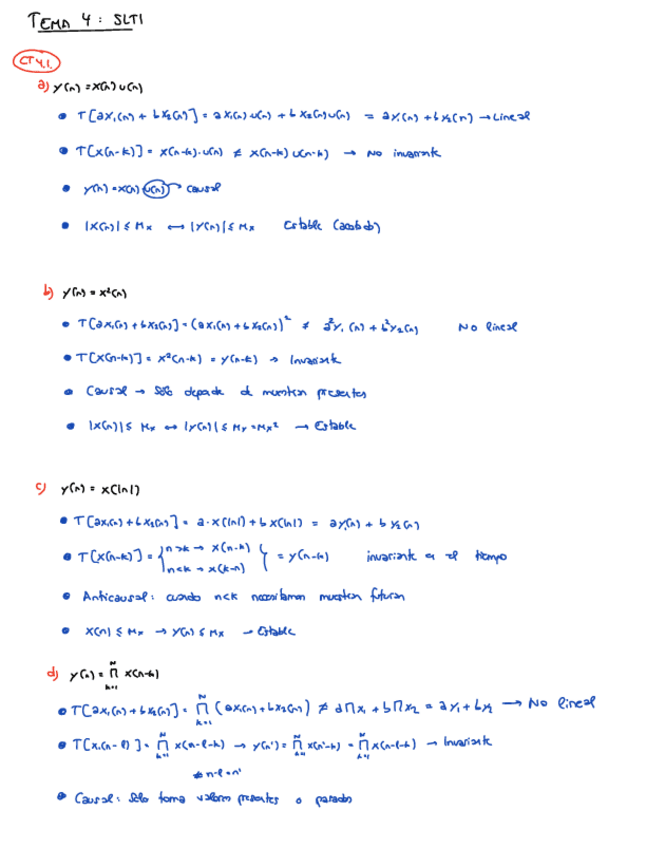 TEMA 4: SLTI
CT 4.1.
a) y(n) = x(n) u(n)
• T[ax₁(n) + bx₂(n)] = ax₁(n)u(n) + bx₂(n)u(n) = ay₁(n) + by₂(n) → Lineal
• T[x(n-k)] = x(n-k)·u(n) ≠ x(n-k) u(n-k) → No invariante
• y(n) = x(n) u(n) → causal
• |x(n)| ≤ Mx ↔ |y(n)| ≤ Mx Estable (acotado)
b) y(n) = x²(n)
• T[ax₁(n) + bx₂(n)] = (ax₁(n) + bx₂(n))² ≠ a²y₁(n) + b²y₂(n) No lineal
• T[x(n-k)] = x²(n-k) = y(n-k) → Invariante
• Causal → Sólo depende de muestras presentes
• |x(n)| ≤ Mx ↔ |y(n)| ≤ My = Mx² → Estable
c) y(n) = x(|n|)
• T[ax₁(n) + bx₂(n)] = a·x(|n|) + bx(|n|) = ay₁(n) + by₂(n)
• T[x(n-k)] = { n>k → x(n-k) } = y(n-k) invariante en el tiempo
n<k → x(k-n)
• Anticausal: cuando n<k necesitamos muestras futuras
• x(n) ≤ Mx → y(n) ≤ Mx → Estable
d) y(n) = ∏ₖ₌₁ᴺ x(n-k)
• T[ax₁(n) + bx₂(n)] = ∏ₖ₌₁ᴺ (ax₁(n) + bx₂(n)) ≠ a∏x₁ + b∏x₂ = ay₁ + by₂ → No lineal
• T[x(n-l)] = ∏ₖ₌₁ᴺ x(n-l-k) → y(n') = ∏ₖ₌₁ᴺ x(n'-k) = ∏ₖ₌₁ᴺ x(n-l-k) → Invariante
* n-l = n'
• Causal: Sólo toma valores presentes o pasados